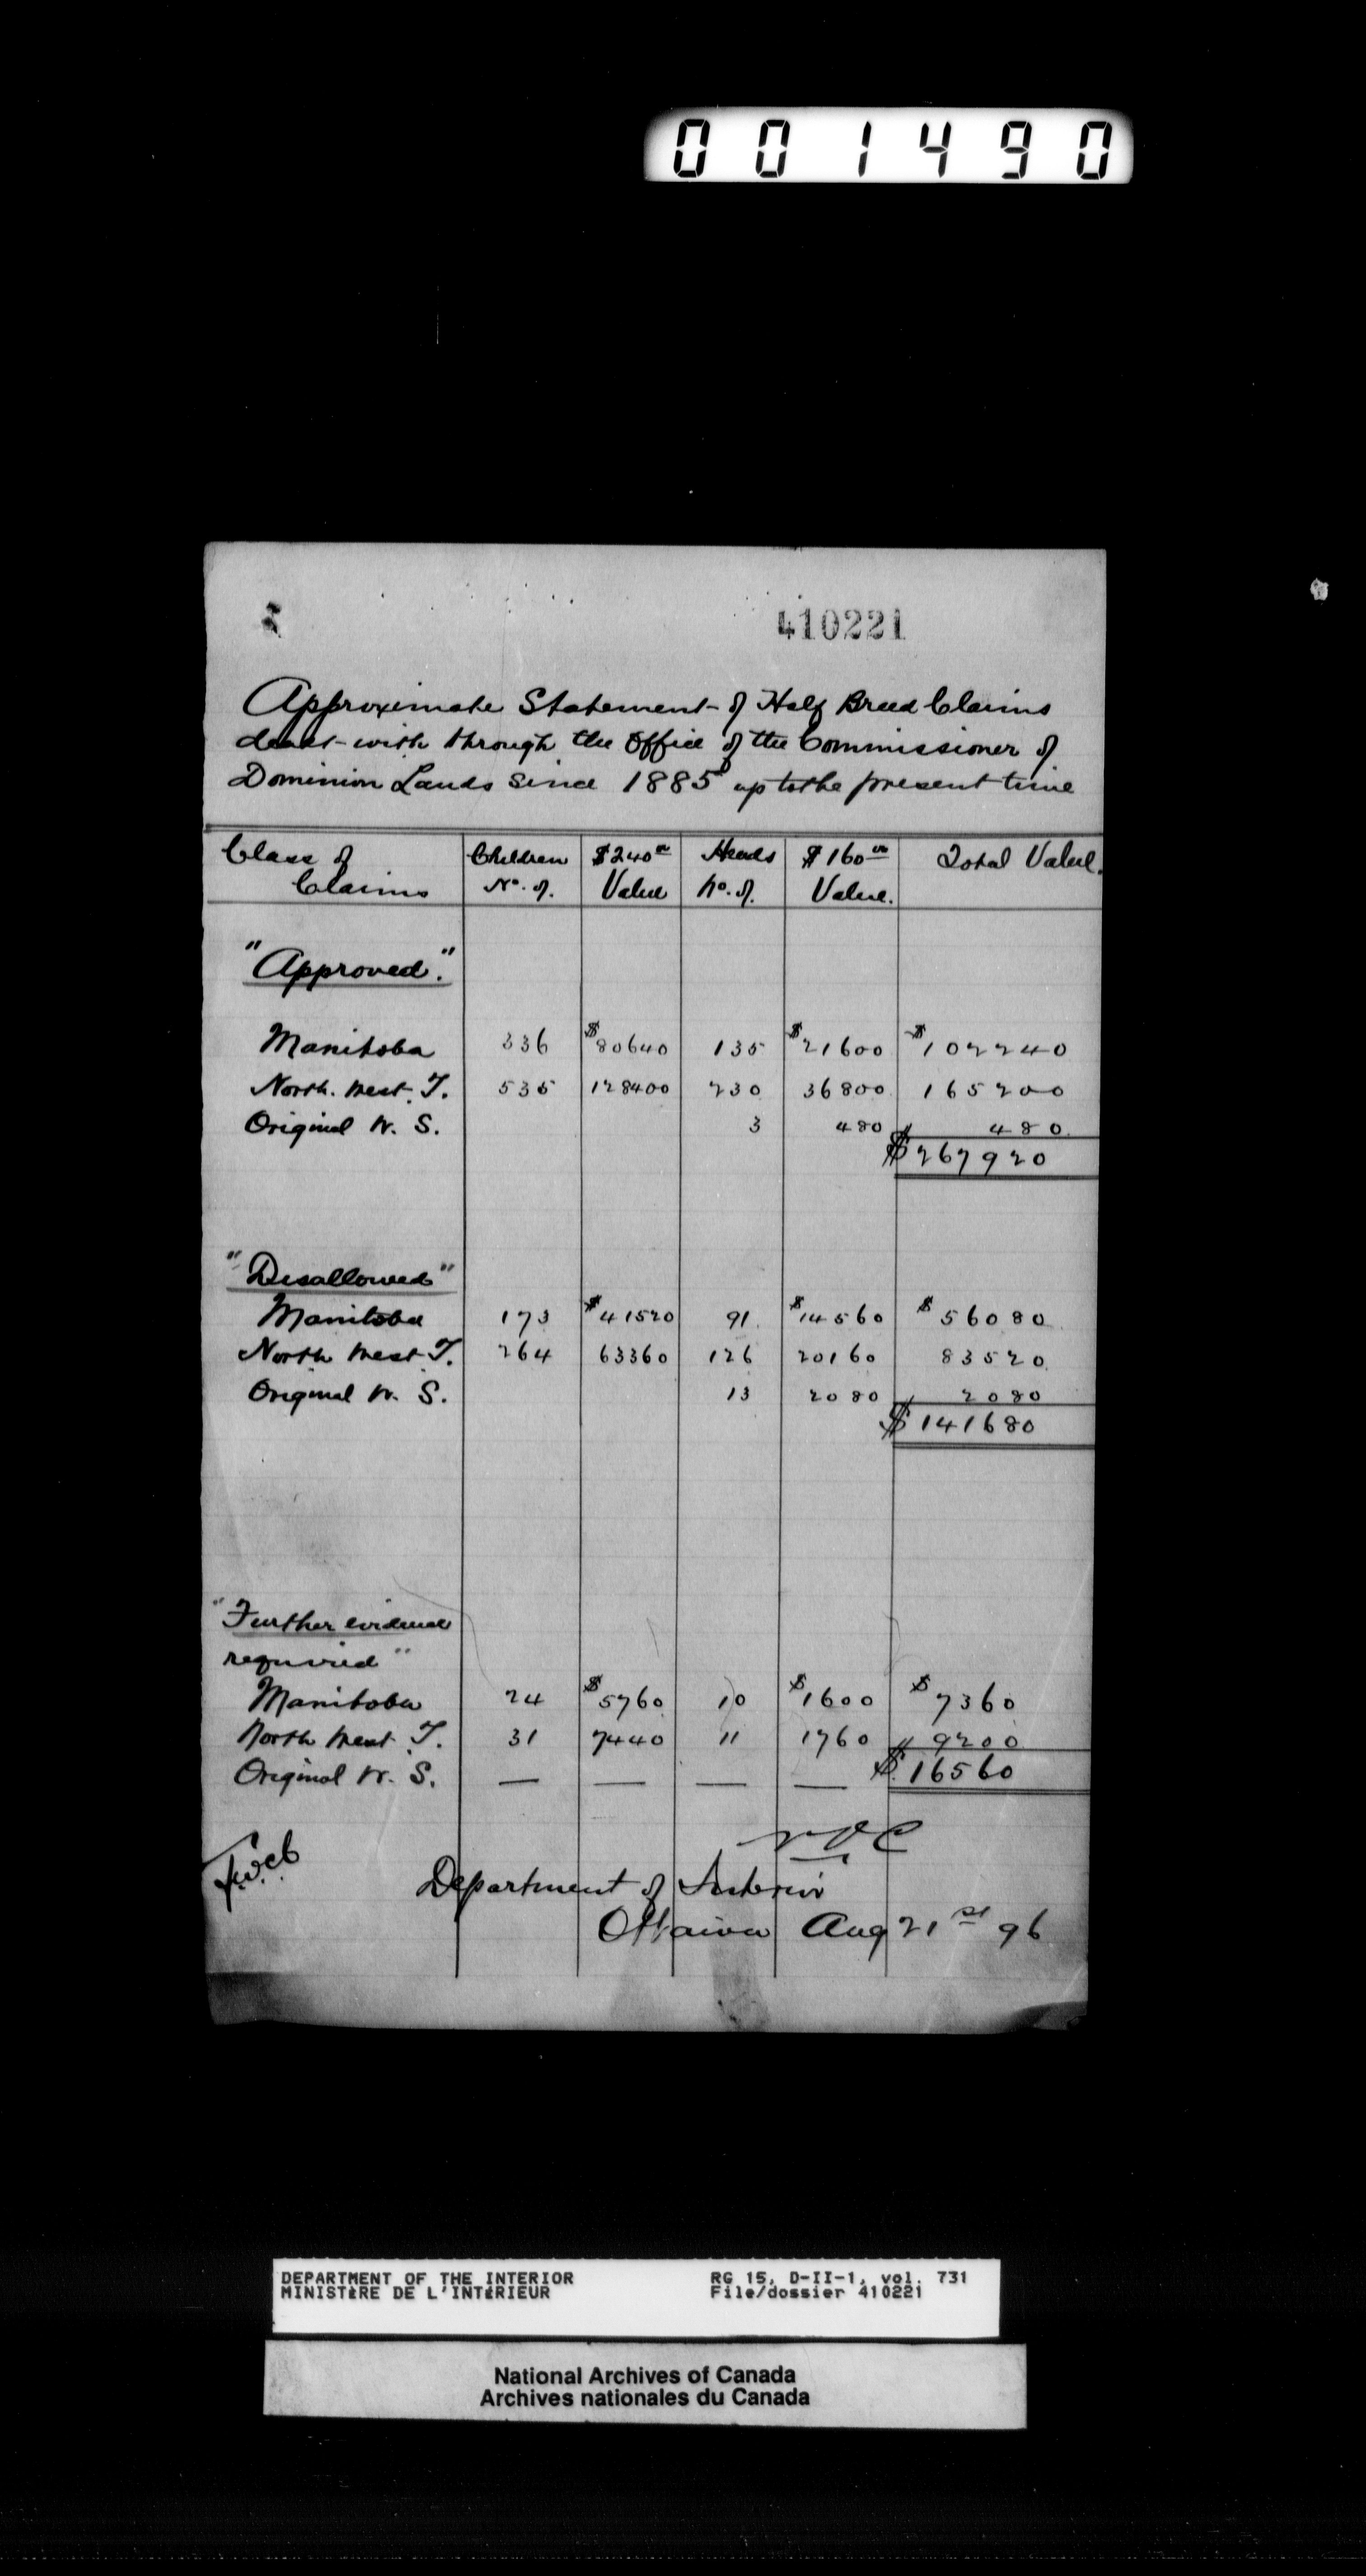 001490
410221
Approximate Statement of Half Breed Claims
dealt with through the Office of the Commissioner of
Dominion Lands since 1885 up to the present time
Class of Claims | Children No. of. | $240 00 Value | Heads No. of. | $160 00 Value. | Total Value.
"Approved".
Manitoba 336 $80640 135 $21600 $102240
North. West. T. 535 128400 230 36800 165200
Original W. S. 3 480 480
$267920
"Disallowed"
Manitoba 173 $41520 91 $14560 $56080
North West T. 264 63360 126 20160 83520
Original W. S. 13 2080 2080
$141680
"Further evidence
required"
Manitoba 24 $5760 10 $1600 $7360
North West T. 31 7440 11 1760 9200
Original W. S. — — — — $16560
Department of Interior
Ottawa Aug 21st 96
DEPARTMENT OF THE INTERIOR RG 15, D-II-1, vol. 731
MINISTÈRE DE L'INTÉRIEUR File/dossier 410221
National Archives of Canada
Archives nationales du Canada